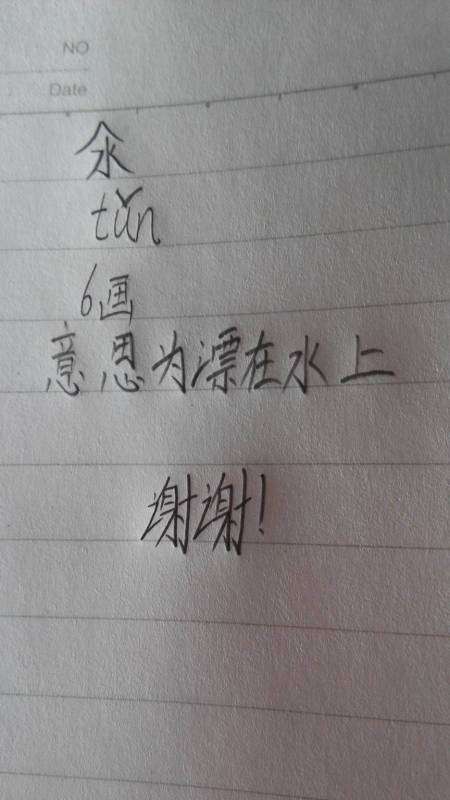 NO
Date
氽
tǔn
6画
意思为漂在水上
谢谢!